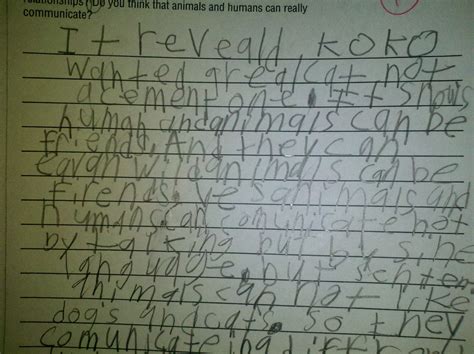 relationships? Do you think that animals and humans can really
communicate?
It reveald koko
wanted a real cat not
a cement one. It shows
human and animals can be
friends. And they can
wild animals can be
firends. yes animals and
humans can comunicate not
by talking but by sine
language. but
animals can not like
dog's and cats. so they
comunicate